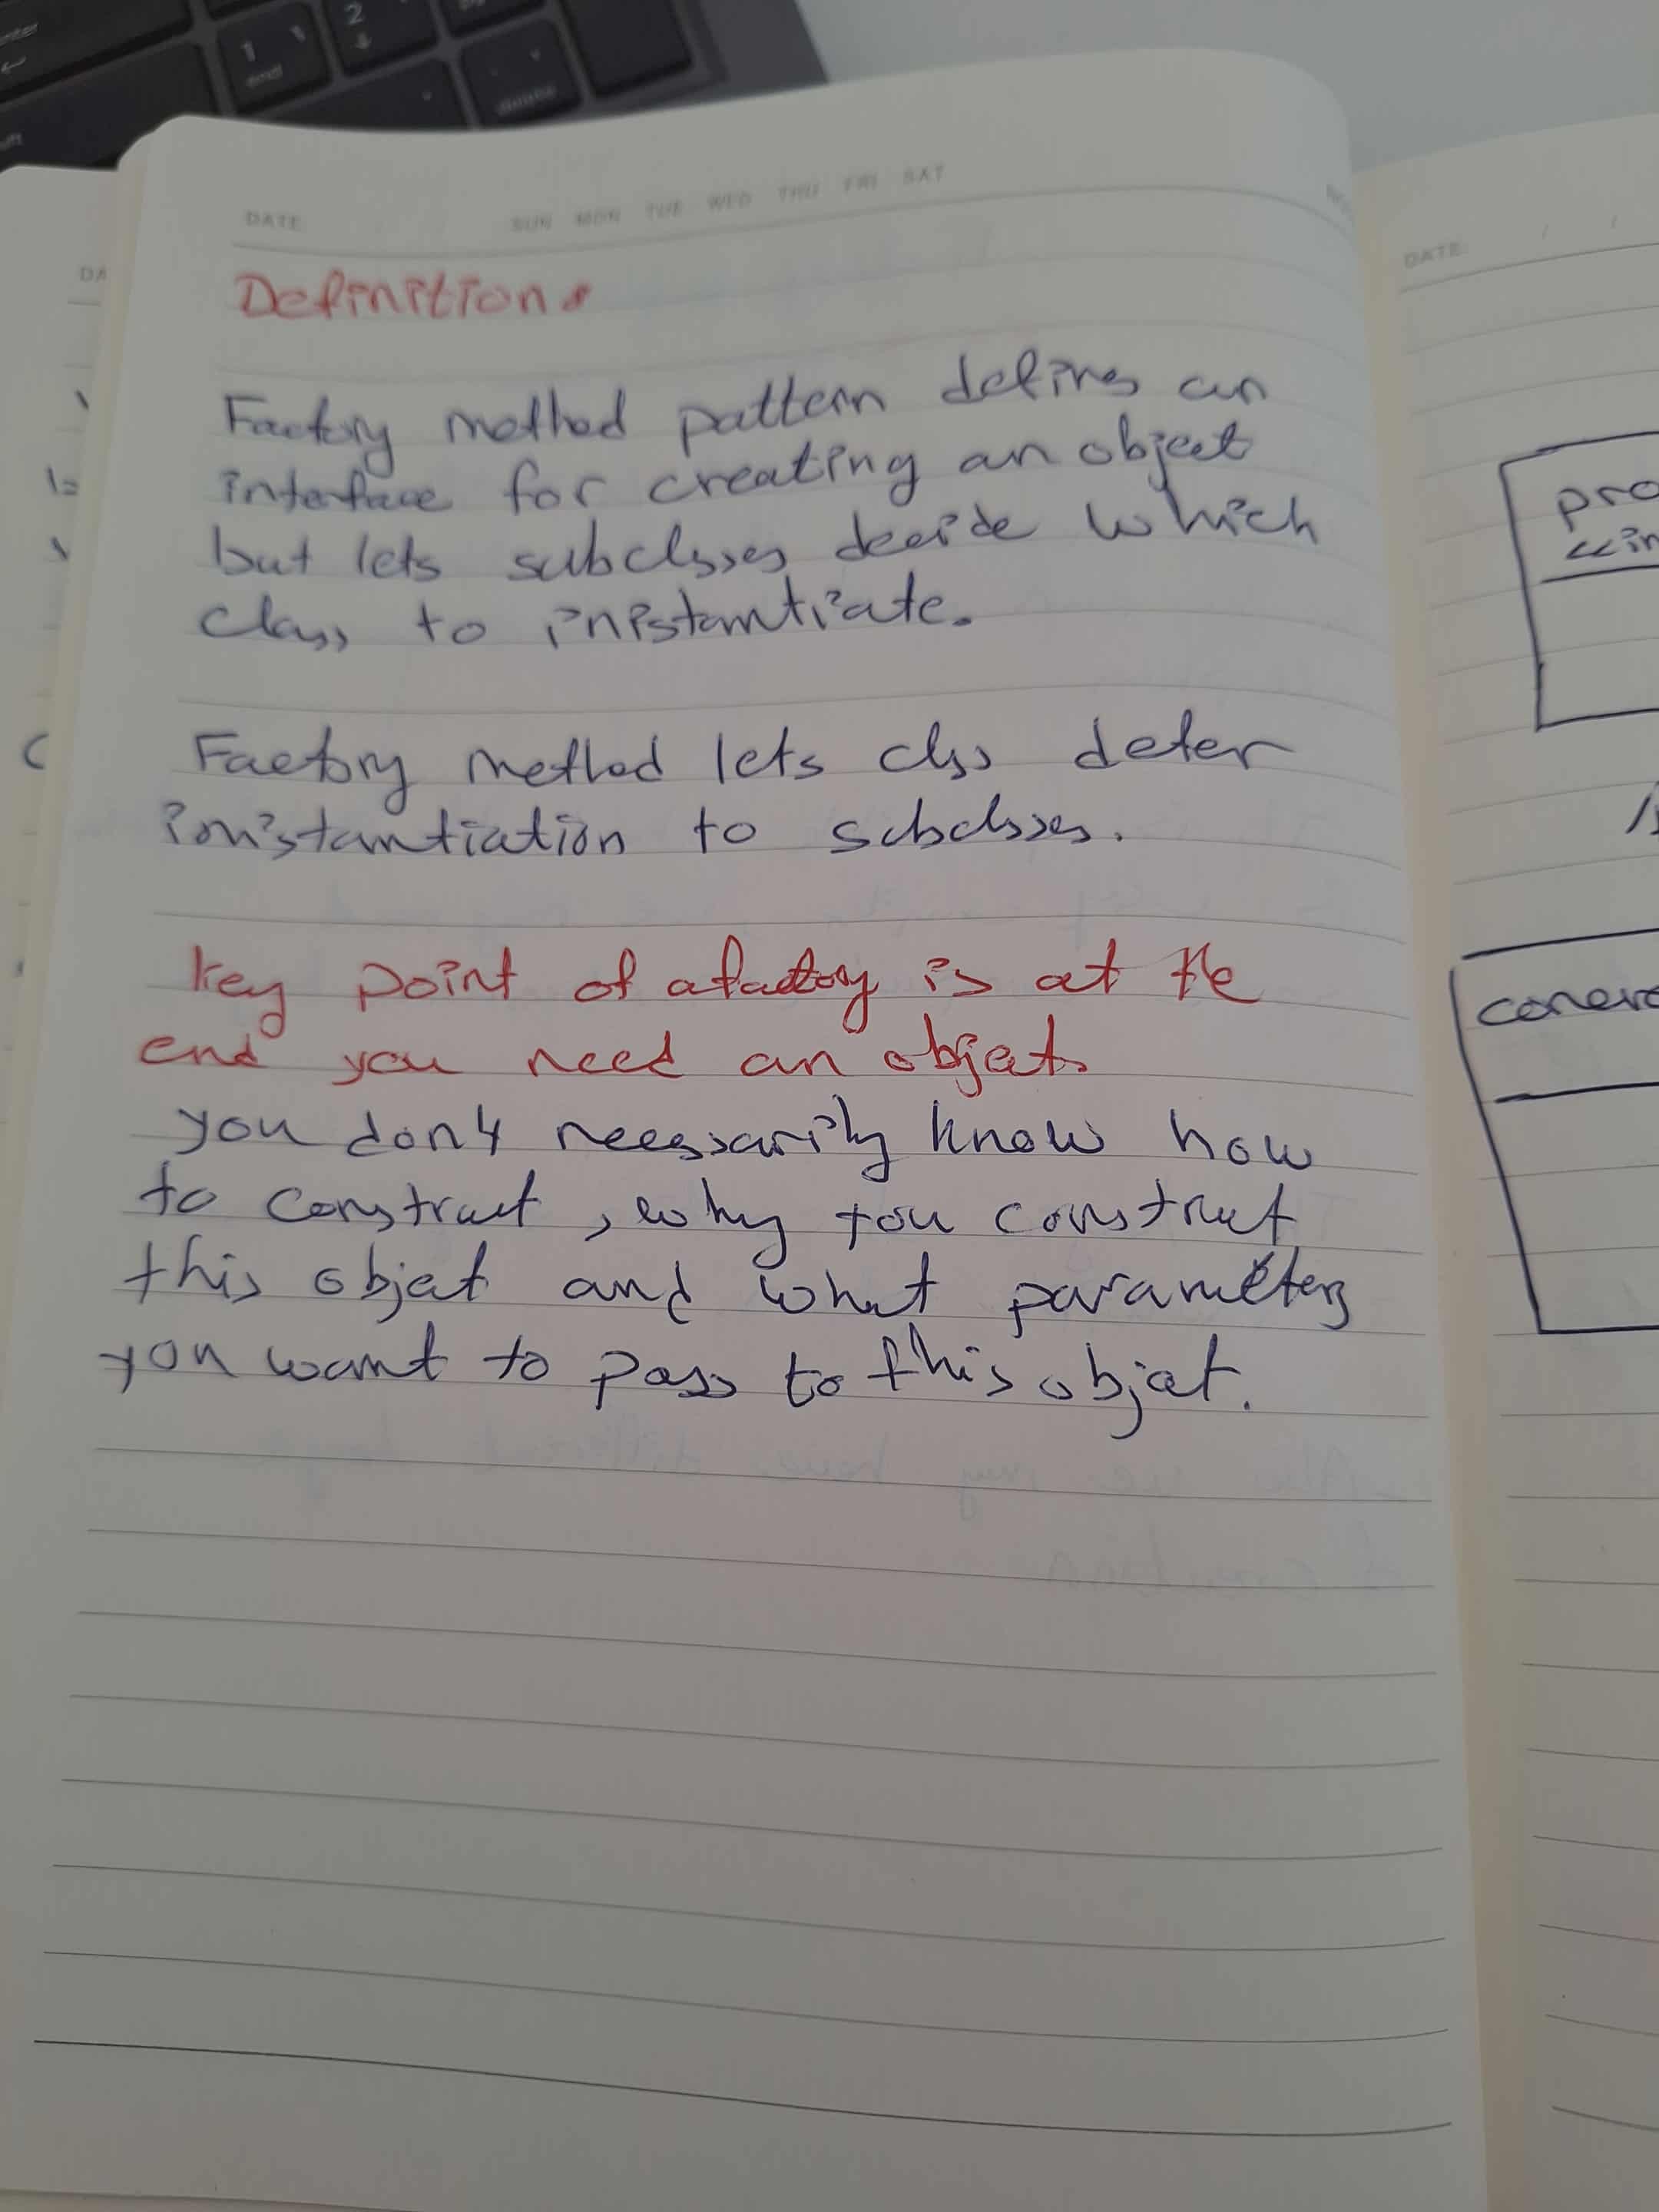 enter
1
end
2
delete
shift
DATE
SUN MON TUE WED THU FRI SAT
NO.
Definition:
Factory method pattern defines an
interface for creating an object
but lets subclsses decide which
class to inistantiate.
Factory method lets clss defer
inistantiation to subclsses.
key point of a factory is at the
end you need an object.
you don't necessarily know how
to construct, why you construct
this object and what parameters
you want to pass to this object.
DA
DATE: / /
pro
<<in
concre